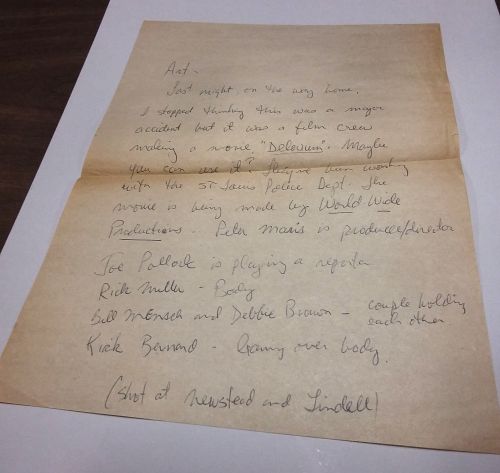 Art -
Last night, on the way home,
I stopped thinking this was a major
accident but it was a film crew
making a movie, "Delerium". Maybe
you can use it? They've been working
with the St Louis Police Dept. The
movie is being made by World Wide
Productions - Peter Maris is producer/director
Joe Pollock is playing a reporter
Rick Miller - Body
Bill Mensch and Debbie Brown - couple holding
each other
Kirk Bernard - leaning over body.
(shot at Newstead and Lindell)